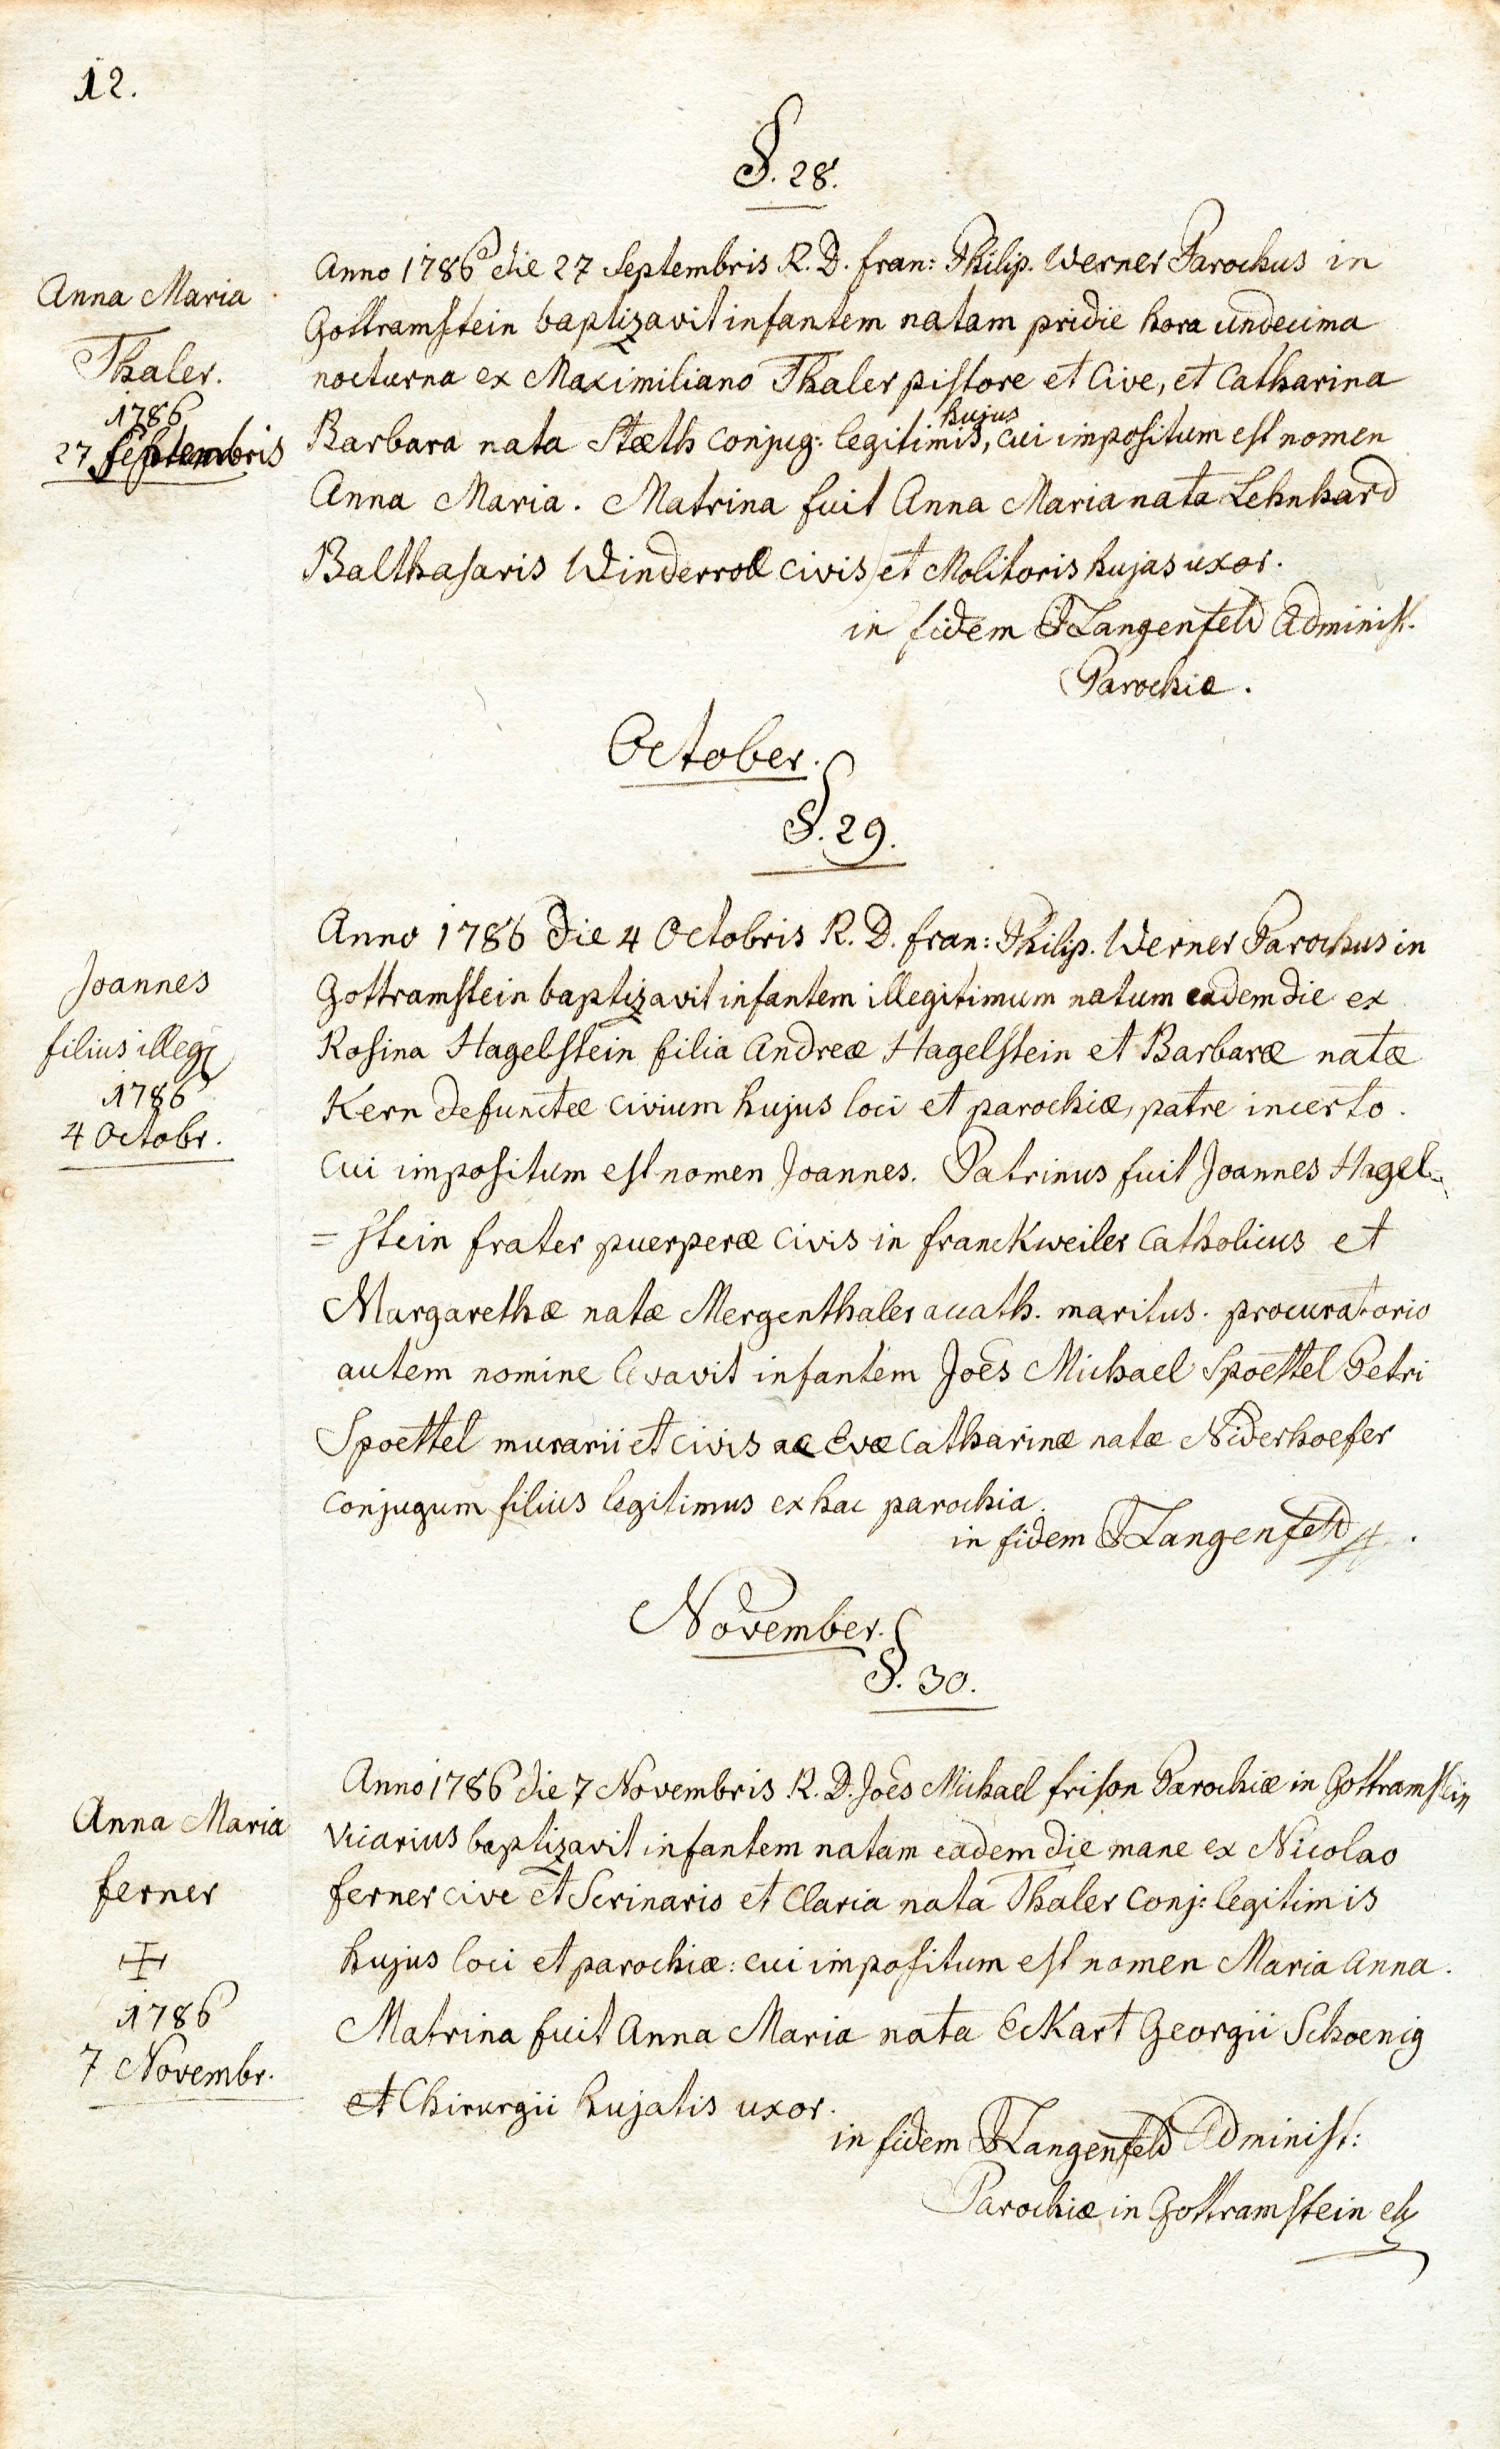 12.
§. 28.
Anna Maria
Thaler.
1786
27 Septembris
Anno 1786 die 27 Septembris R. D. fran: Philip. Werner Parochus in
Gottramstein baptizavit infantem natam pridie hora undecima
nocturna ex Maximiliano Thaler pistore et Cive, et Catharina
hujus
Barbara nata Stæth conjug: legitimis, cui impositum est nomen
Anna Maria. Matrina fuit Anna Maria nata Lehnhard
Balthasaris Winderroll civis et Molitoris hujas uxor.
in fidem Langenfeld Administ.
Parochiæ.
October.
§. 29.
Joannes
filius illeg
1786
4 Octobr.
Anno 1786 Die 4 Octobris R. D. fran: Philip. Werner Parochus in
Gottramstein baptizavit infantem illegitimum natum eadem die ex
Rosina Hagelstein filia Andreæ Hagelstein et Barbaræ natæ
Kern defunctæ civium hujus loci et parochiæ, patre incerto.
Cui impositum est nomen Joannes. Patrinus fuit Joannes Hagel-
= stein frater puerperæ civis in franckweiler Catholicus et
Margarethæ natæ Mergenthaler acath. maritus. procuratorio
autem nomine levavit infantem Joēs Michael Spoettel Petri
Spoettel murarii et civis ac Evæ Catharinæ natæ Niderhoefer
Conjugum filius legitimus ex hac parochia.
in fidem Langenfeld
November.
§. 30.
Anna Maria
ferner
1786
7 Novembr.
Anno 1786 die 7 Novembris R. D. Joēs Michael frison Parochiæ in Gottramstein
Vicarius baptizavit infantem natam eadem die mane ex Nicolao
ferner cive et Scrinario et Claria nata Thaler Conj: legitimis
hujus loci et parochiæ: cui impositum est nomen Maria Anna.
Matrina fuit Anna Maria nata Eckart Georgii Schoenig
et Chirurgii hujatis uxor.
in fidem Langenfeld Administ:
Parochiæ in Gottramstein